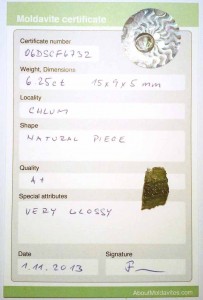 Moldavite certificate
Certificate number
06DSCF6732
Weight, Dimensions
6.25ct 15x9x5mm
Locality
CHLUM
Shape
NATURAL PIECE
Quality
A1
Special attributes
VERY GLOSSY
Date
Signature
1.11.2013
AboutMoldavites.com